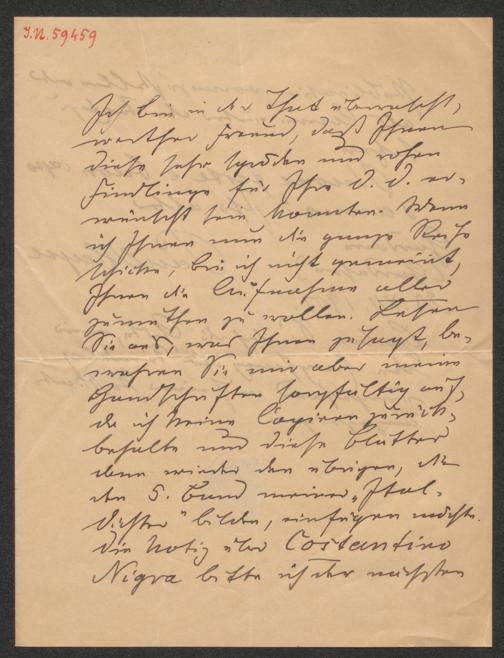 I.N. 59459
Ich bin in der That überrascht,
werther Freund, daß Ihnen
diese sehr spröden und rohen
Findlinge für Ihre D. D. er-
wünscht sein konnten. Wenn
ich Ihnen nun die ganze Reihe
schicke, bin ich nicht gemeint,
Ihnen die Aufnahme aller
zumuthen zu wollen. Lesen
Sie aus, was Ihnen zusagt, be-
wahren Sie mir aber meine
Handschriften sorgfältig auf,
da ich keine Copieen zurück-
behalte und diese Blätter
dann wieder den übrigen, die
den 5. Band meiner „Ital.
Dichter" bilden, einfügen möchte.
Die Notiz über Costantino
Nigra bitte ich der nächsten